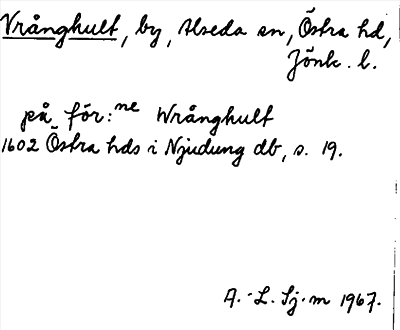 Vrånghult, by, Alseda sn, Östra hd,
Jönk. l.
på för:ne Wrånghult
1602 Östra hds i Njudung db, s. 19.
A.-L. Sj.m 1967.